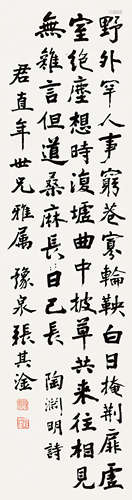 野外罕人事窮巷寡輪鞅白日掩荊扉虛
室絕塵想時復墟曲中披草共来往相見
無雜言但道桑麻長日已長 陶淵明詩
君直年世兄雅属 豫泉張其淦